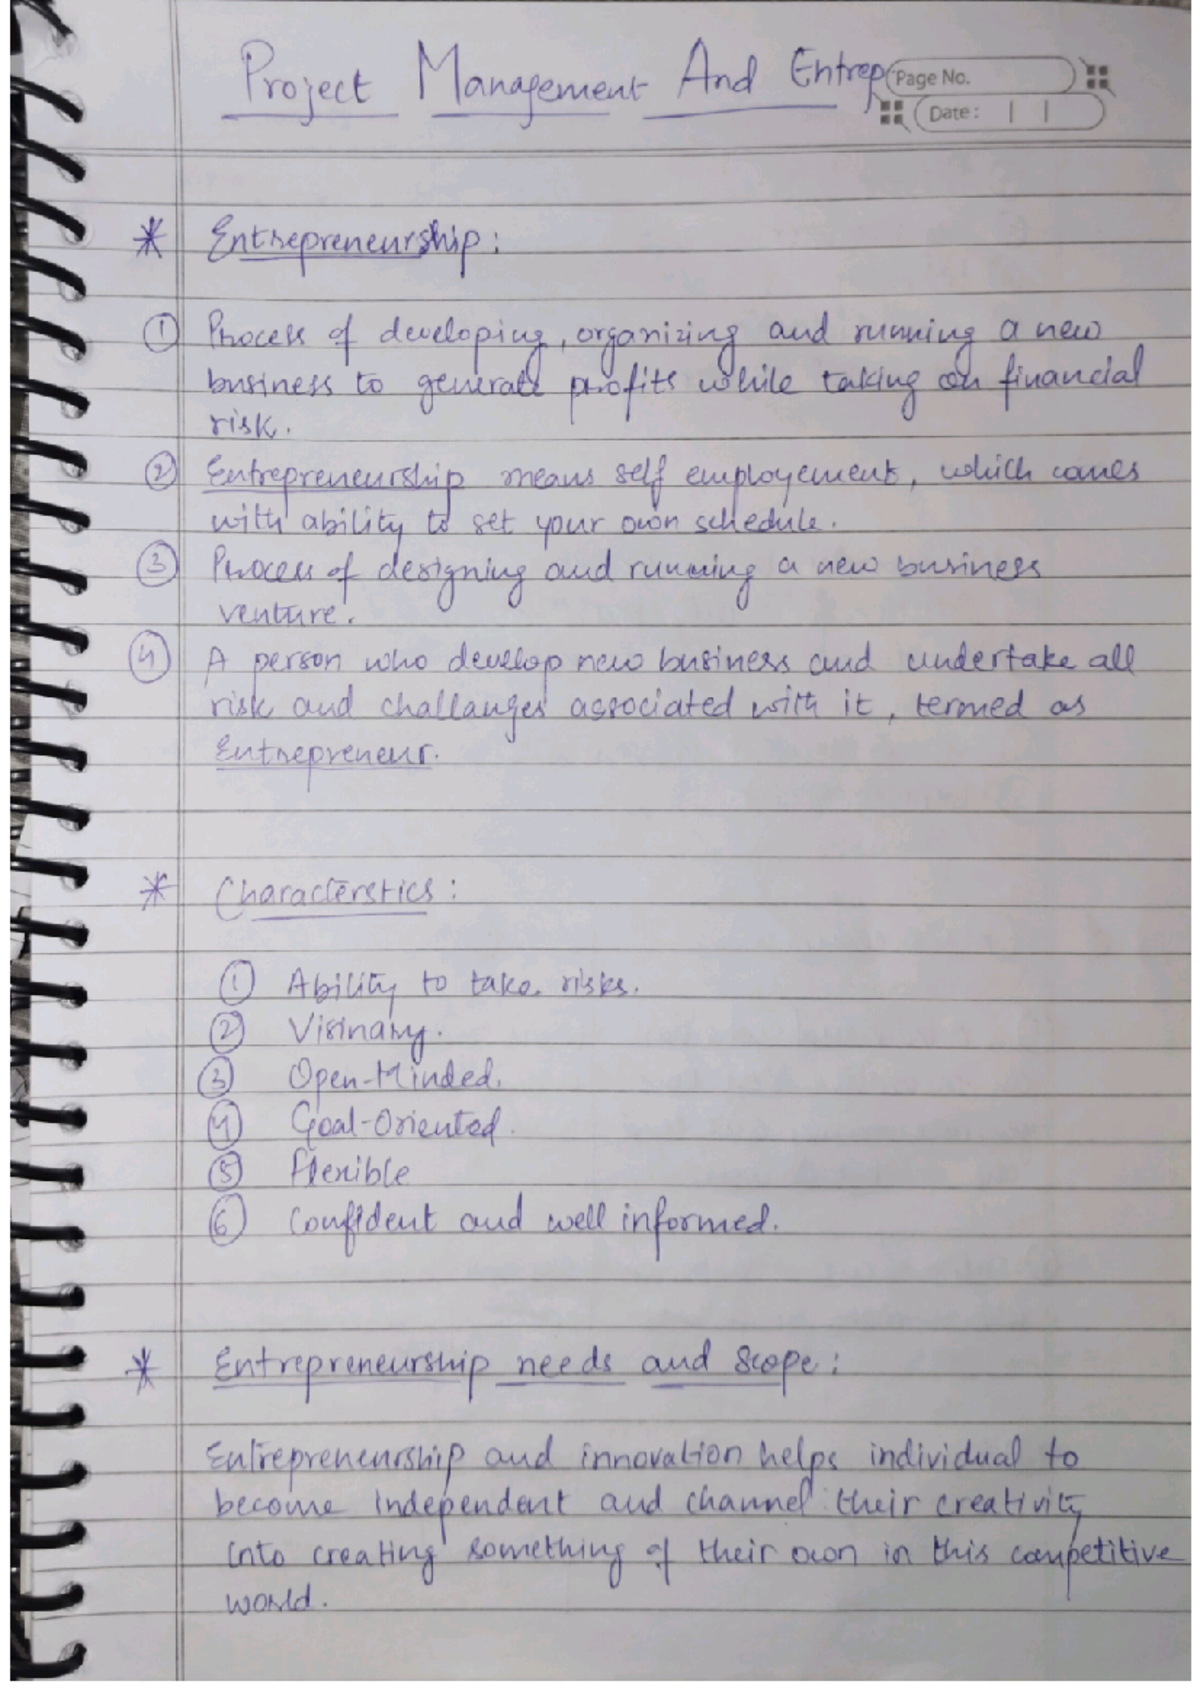 Project Management And Entrep
Page No.
Date:
* Entrepreneurship:
① Process of developing, organizing and running a new
business to generate profits while taking on financial
risk.
② Entrepreneurship means self employement, which comes
with ability to set your own schedule.
③ Process of designing and running a new business
venture.
④ A person who develop new business and undertake all
risk and challanges associated with it, termed as
Entrepreneur.
* Characterstics:
① Ability to take risks.
② Visinary.
③ Open-Minded.
④ Goal-Oriented.
⑤ Flexible
⑥ Confident and well informed.
* Entrepreneurship needs and Scope:
Entrepreneurship and innovation helps individual to
become independent and channel their creativity
into creating something of their own in this competitive
world.